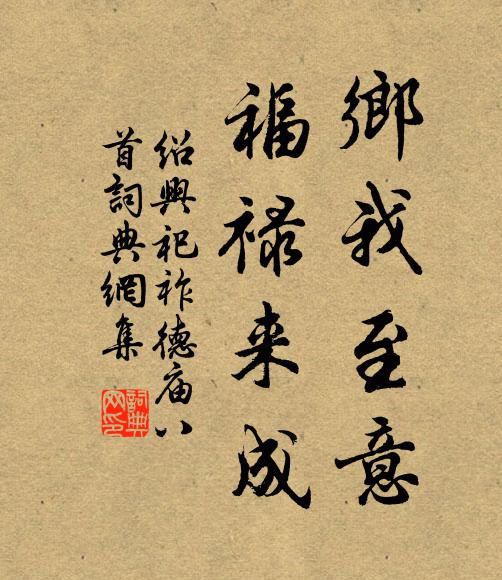 鄉我至意
福禄来成
绍興祀祚德庙八
首詞典網集
詞典
网印